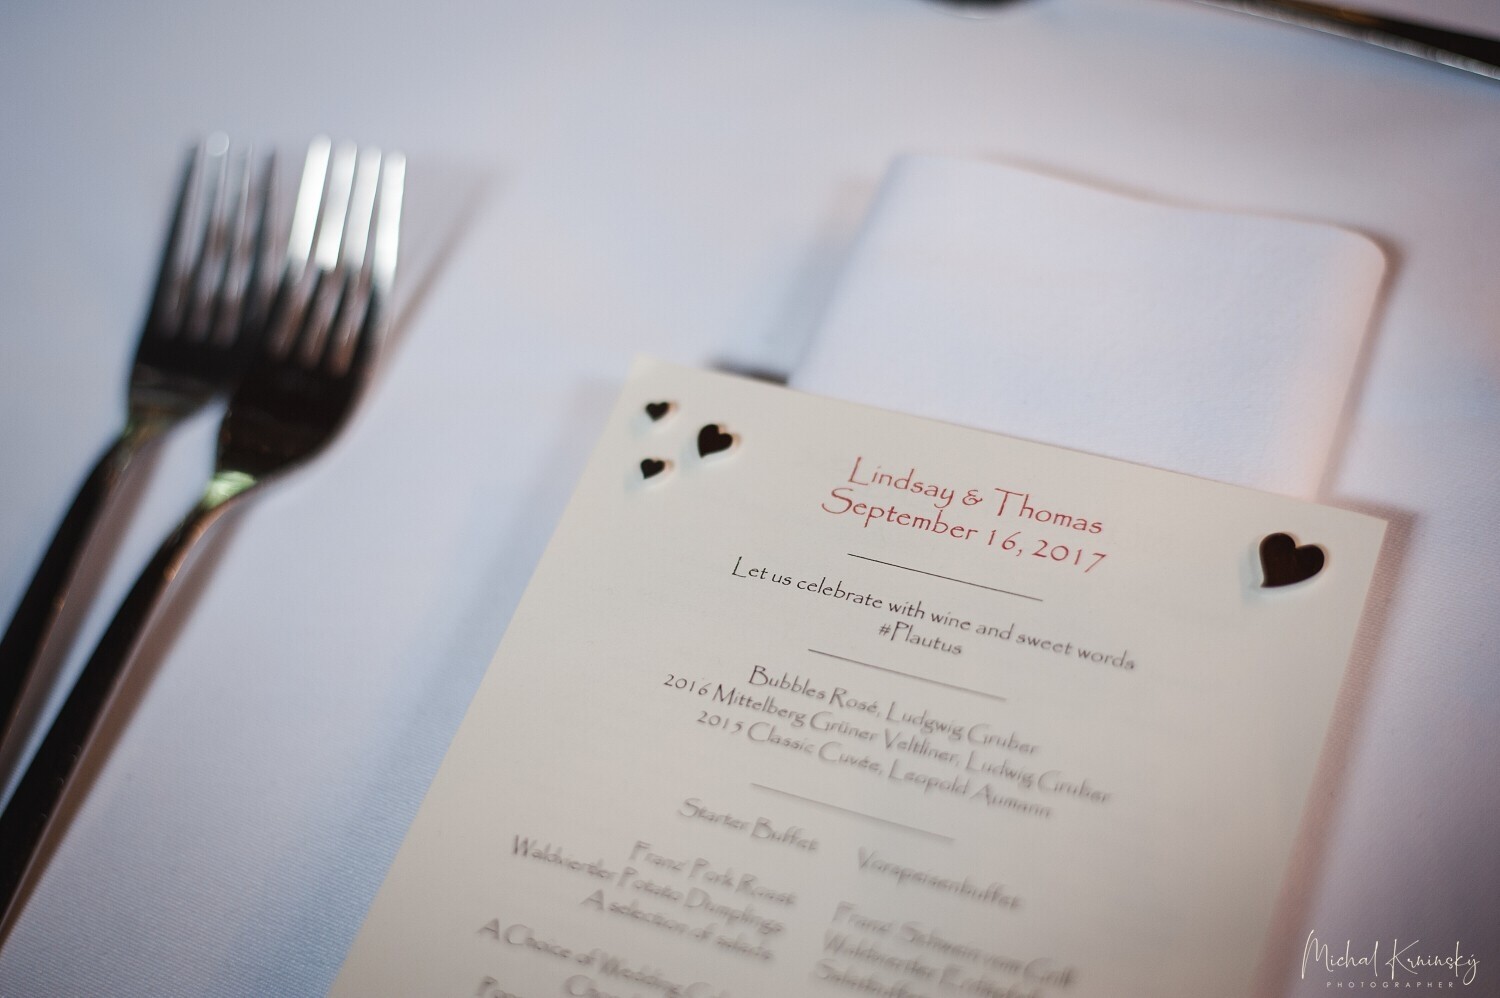 Lindsay & Thomas
September 16, 2017
Let us celebrate with wine and sweet words
#Plautus
Bubbles Rosé, Ludgwig Gruber
2016 Mittelberg Grüner Veltliner, Ludwig Gruber
2015 Classic Cuvée, Leopold Aumann
Starter Buffet
Vorspeisenbuffet
Franz' Pork Roast
Waldviertler Potato Dumplings
A selection of salads
A Choice of Wedding
Franz' Schwein vom Grill
Waldviertler
Michal Krninský
PHOTOGRAPHER